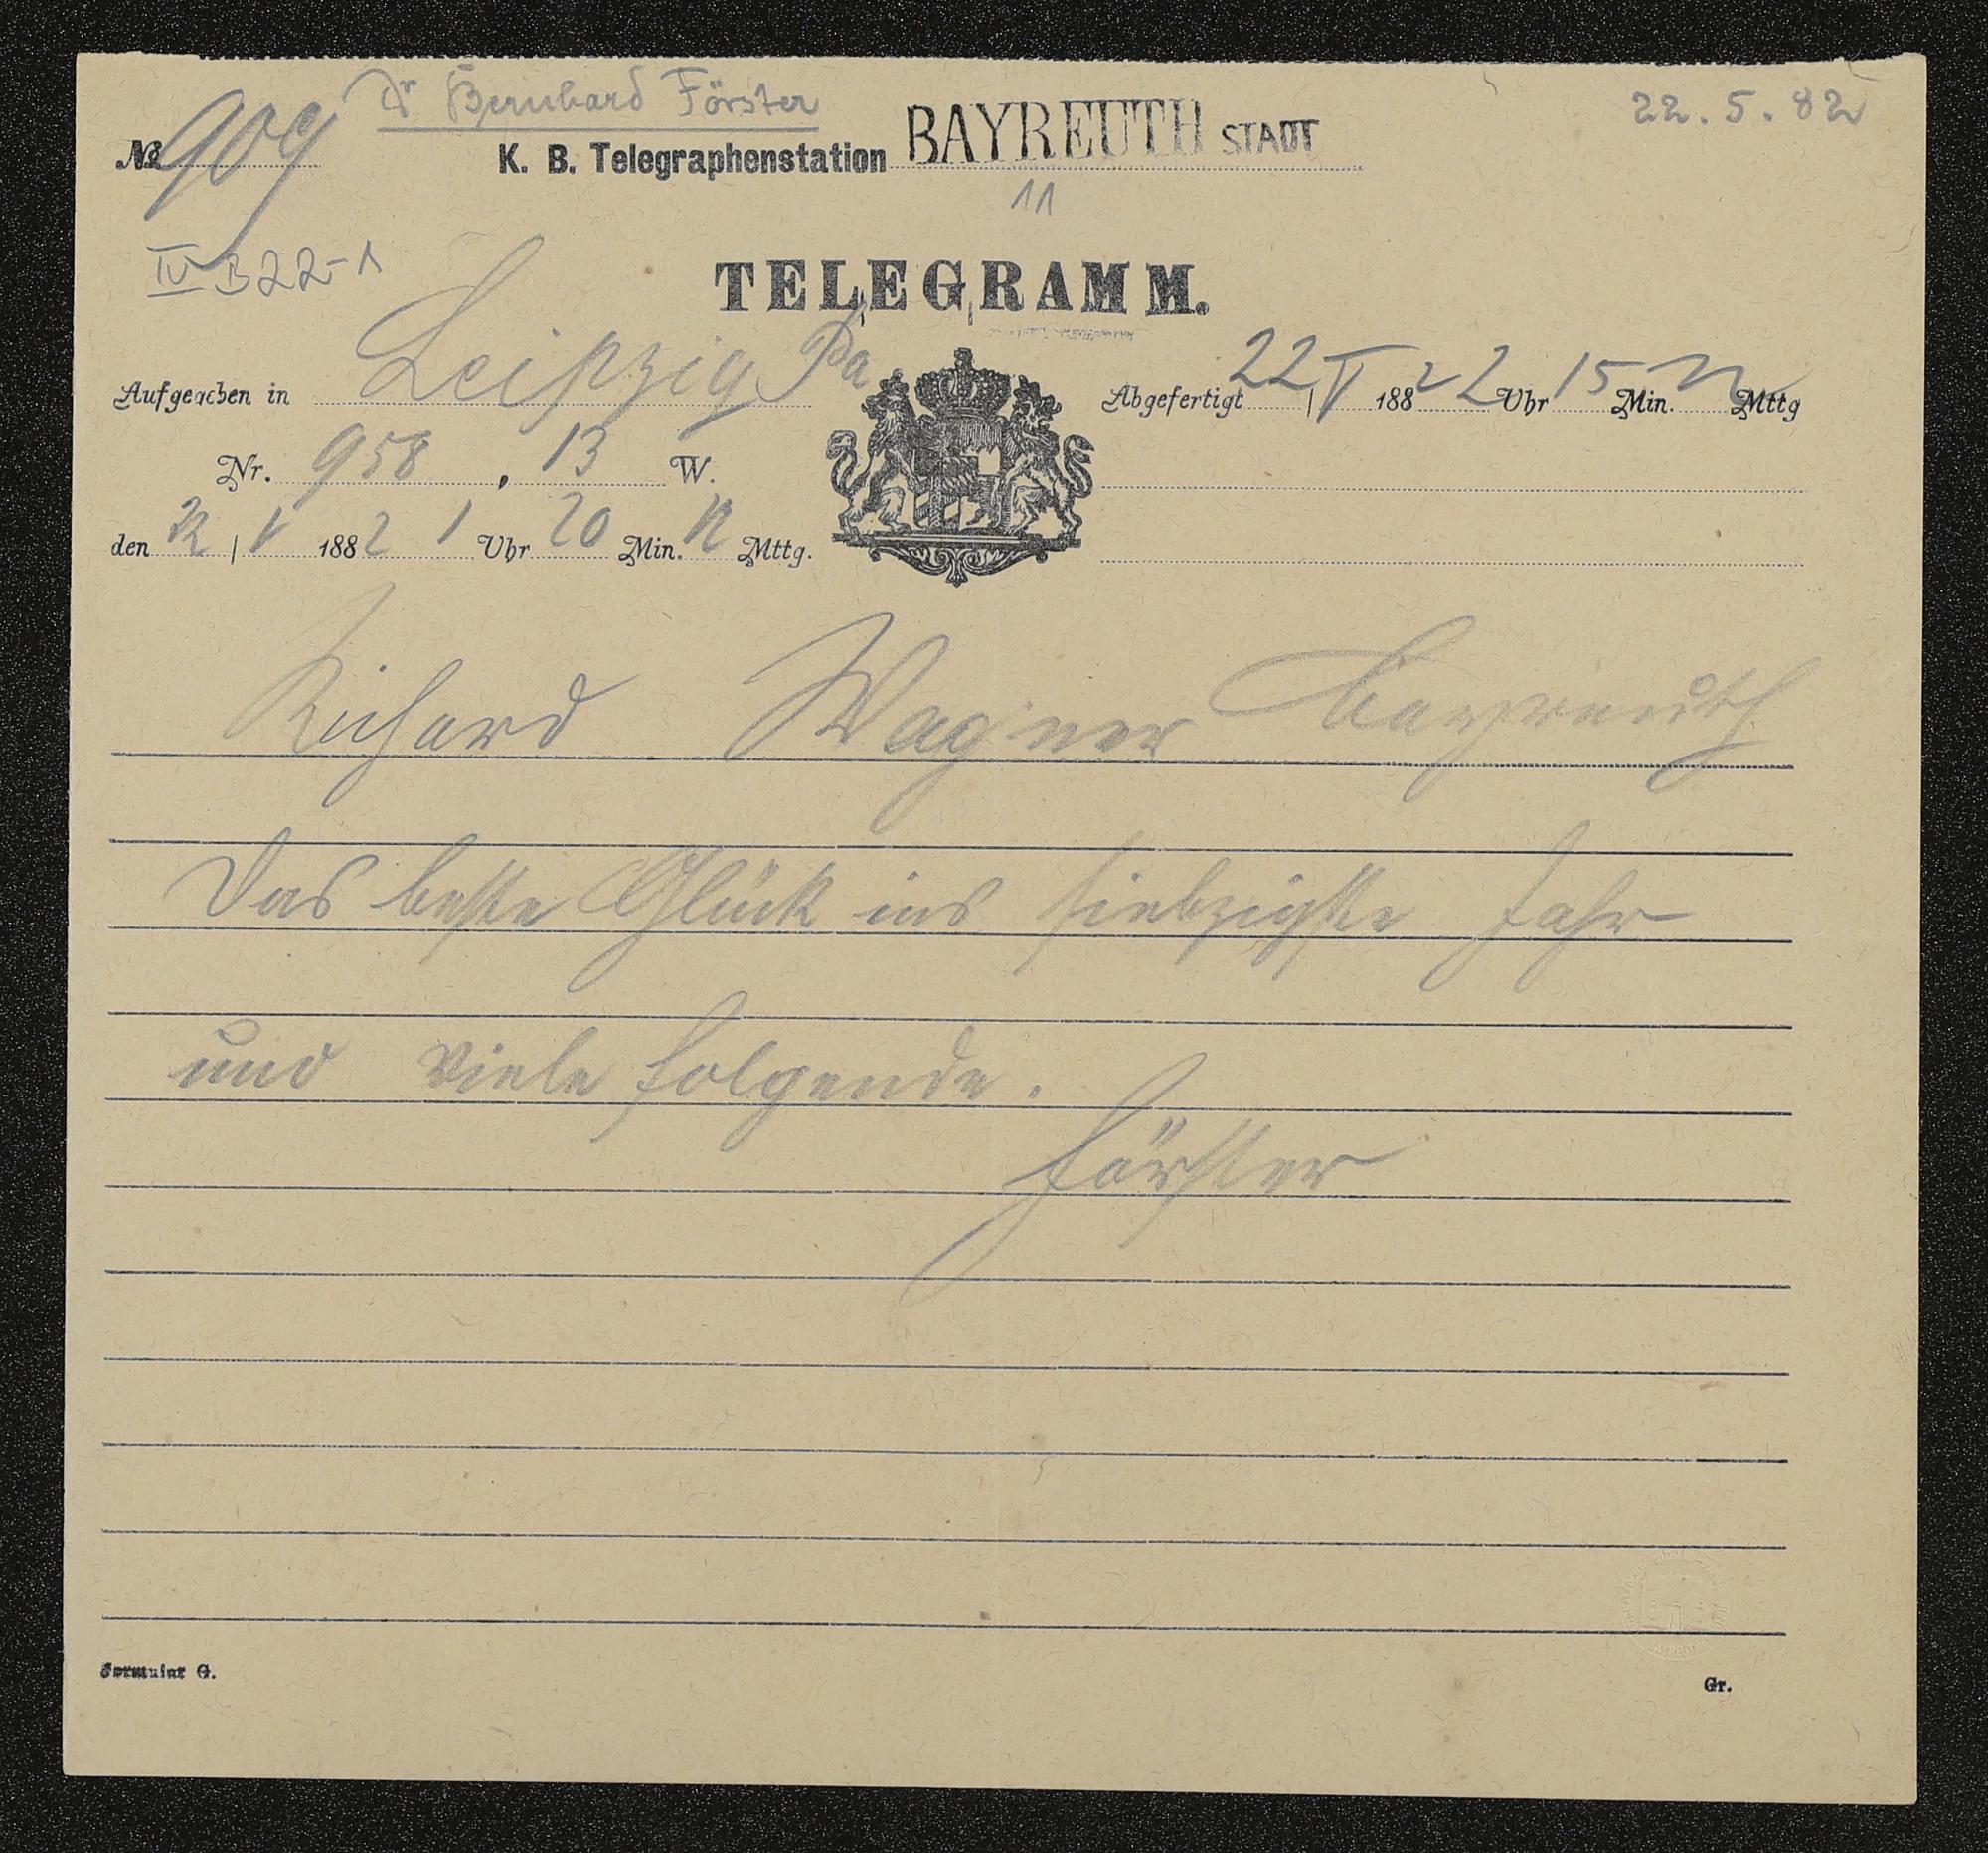 Dr Bernhard Förster
22.5.82
№ 909 K. B. Telegraphenstation BAYREUTH STADT
11
IV B 22-1
TELEGRAMM.
Aufgegeben in Leipzig Pa
Abgefertigt 22 / V 1882 2 Uhr 15 Min. N Mttg
Nr. 958, 13 W.
den 22 / V 1882 1 Uhr 20 Min. N Mttg.
Richard Wagner Bayreuth
Das beste Glück ins siebzigste Jahr
und viele folgende.
Förster
Formular G.
Gr.